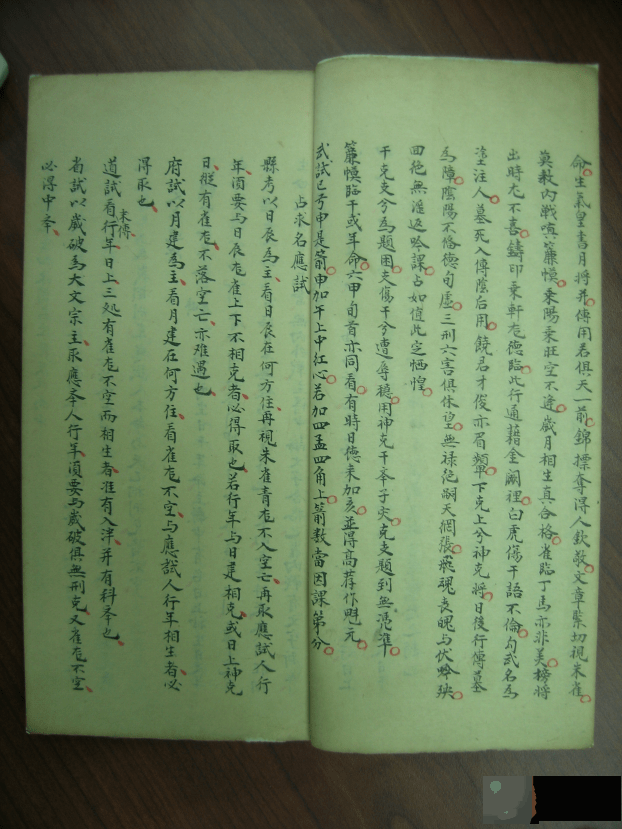 命生氣皇書月將并傳用若俱天一前錦標奪得人欽敬文章緊切視朱雀
莫教內戰嗔簾幙乘陽乘旺空不逢歲月相生真合格雀臨丁馬亦非美榜將
出時尨不喜鑄印乘軒尨德臨此行通藉金闕裡白虎傷干語不倫句武名為
墓死入傳陰后用饒君才俊亦眉顰下克上兮神克將日後行傳墓
為障陰陽不俻德旬虛三刑六害俱休望無祿絕嗣天網張飛魂喪魄与伏吟殃
回絕無滛返吟課占如值此定恓惶
干克支兮為題困支傷干兮遭辱穏用神克干牽子灾克支題到無慿準
簾幙臨干或年命六甲旬首亦同看有時日德来加亥並得高荐作魁元
武試巳考申是箭申加午上中红心若加四孟四角上箭数當因課第分
占求名應試
縣考以日辰為主看日辰在何方住再視朱雀青尨不入空亡再取應試人行
年須要与日辰尨雀上下不相克者必得取也若行年与日建相克或日上神克
日縱有雀尨不落空亡亦难遇也
府試以月建為主看月建在何方住看雀尨不空与應試人行年相生者必
得取也
道試看行年日上末傳三処有雀尨不空而相生者准有入泮并有科牽也
省試以歲破為大文宗主取應牽人行年須要与歲破俱無刑克又雀尨不空
必得中牽